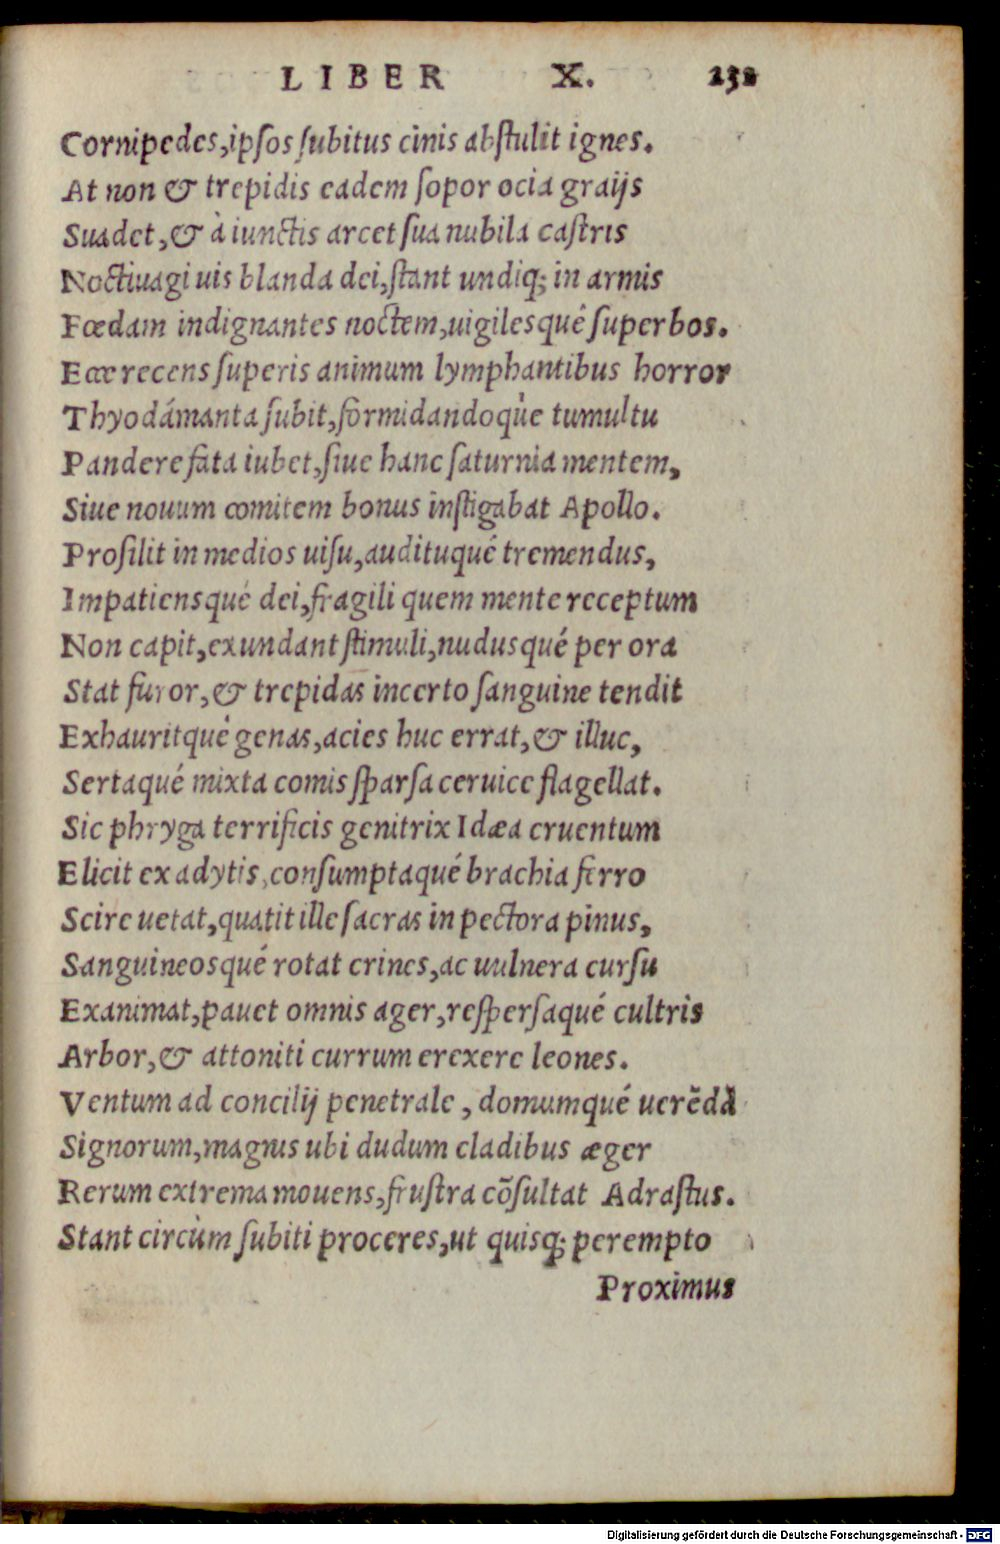 LIBER X. 232
Cornipedes,ipſos ſubitus cinis abſtulit ignes.
At non & trepidis eadem ſopor ocia graijs
Suadet,& à iunctis arcet ſua nubila caſtris
Noctiuagi uis blanda dei,ſtant undiq; in armis
Fœdam indignantes noctem,uigilesquê ſuperbos.
Ecce recens ſuperis animum lymphantibus horror
Thyodámanta ſubit,formidandoqùe tumultu
Pandere fata iubet,ſiue hanc ſaturnia mentem,
Siue nouum comitem bonus inſtigabat Apollo.
Proſilit in medios uiſu,audituqué tremendus,
Impatiensqué dei,fragili quem mente receptum
Non capit,exundant ſtimuli,nudusqué per ora
Stat furor,& trepidas incerto ſanguine tendit
Exhauritquè genas,acies huc errat,& illuc,
Sertaqué mixta comis ſparſa ceruice flagellat.
Sic phryga terrificis genitrix Idæa cruentum
Elicit ex adytis,conſumptaqué brachia ferro
Scire uetat,quatit ille ſacras in pectora pinus,
Sanguineosqué rotat crines,ac uulnera curſu
Exanimat,pauet omnis ager,reſperſaqué cultris
Arbor,& attoniti currum erexere leones.
Ventum ad concilij penetrale , domumqué uerẽdã
Signorum,magnis ubi dudum cladibus æger
Rerum extrema mouens,fruſtra cõſultat Adraſtus.
Stant circùm ſubiti proceres,ut quisq; perempto
Proximus
Digitalisierung gefördert durch die Deutsche Forschungsgemeinschaft - DFG